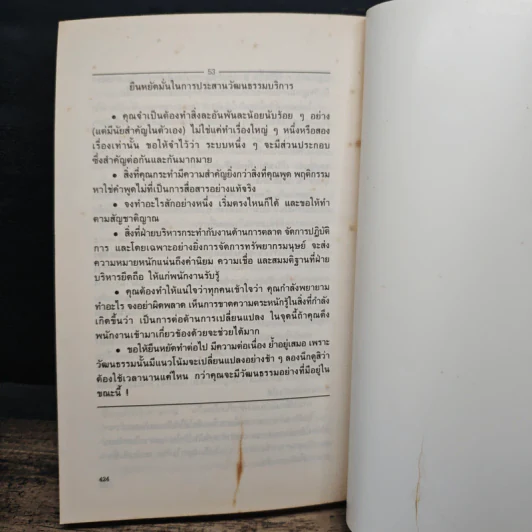 53
ยืนหยัดมั่นในการประสานวัฒนธรรมบริการ
• คุณจำเป็นต้องทำสิ่งละอันพันละน้อยนับร้อย ๆ อย่าง
(แต่มีนัยสำคัญในตัวเอง) ไม่ใช่แค่ทำเรื่องใหญ่ ๆ หนึ่งหรือสอง
เรื่องเท่านั้น ขอให้จำไว้ว่า ระบบหนึ่ง ๆ จะมีส่วนประกอบ
ซึ่งสำคัญต่อกันและกันมากมาย
• สิ่งที่คุณกระทำมีความสำคัญยิ่งกว่าสิ่งที่คุณพูด พฤติกรรม
หาใช่คำพูดไม่ที่เป็นการสื่อสารอย่างแท้จริง
• จงทำอะไรสักอย่างหนึ่ง เริ่มตรงไหนก็ได้ และขอให้ทำ
ตามสัญชาติญาณ
• สิ่งที่ฝ่ายบริหารกระทำกับงานด้านการตลาด จัดการปฏิบัติ
การ และโดยเฉพาะอย่างยิ่งการจัดการทรัพยากรมนุษย์ จะส่ง
ความหมายหนักแน่นถึงค่านิยม ความเชื่อ และสมมติฐานที่ฝ่าย
บริหารยึดถือ ให้แก่พนักงานรับรู้
• คุณต้องทำให้แน่ใจว่าทุกคนเข้าใจว่า คุณกำลังพยายาม
ทำอะไร จงอย่าผิดพลาด เห็นการขาดความตระหนักรู้ในสิ่งที่กำลัง
เกิดขึ้นว่า เป็นการต่อต้านการเปลี่ยนแปลง ในจุดนี้ถ้าคุณดึง
พนักงานเข้ามาเกี่ยวข้องด้วยจะช่วยได้มาก
• ขอให้ยืนหยัดทำต่อไป มีความต่อเนื่อง ย้ำอยู่เสมอ เพราะ
วัฒนธรรมนั้นมีแนวโน้มจะเปลี่ยนแปลงอย่างช้า ๆ ลองนึกดูสิว่า
ต้องใช้เวลานานแค่ไหน กว่าคุณจะมีวัฒนธรรมอย่างที่มีอยู่ใน
ขณะนี้ !
434